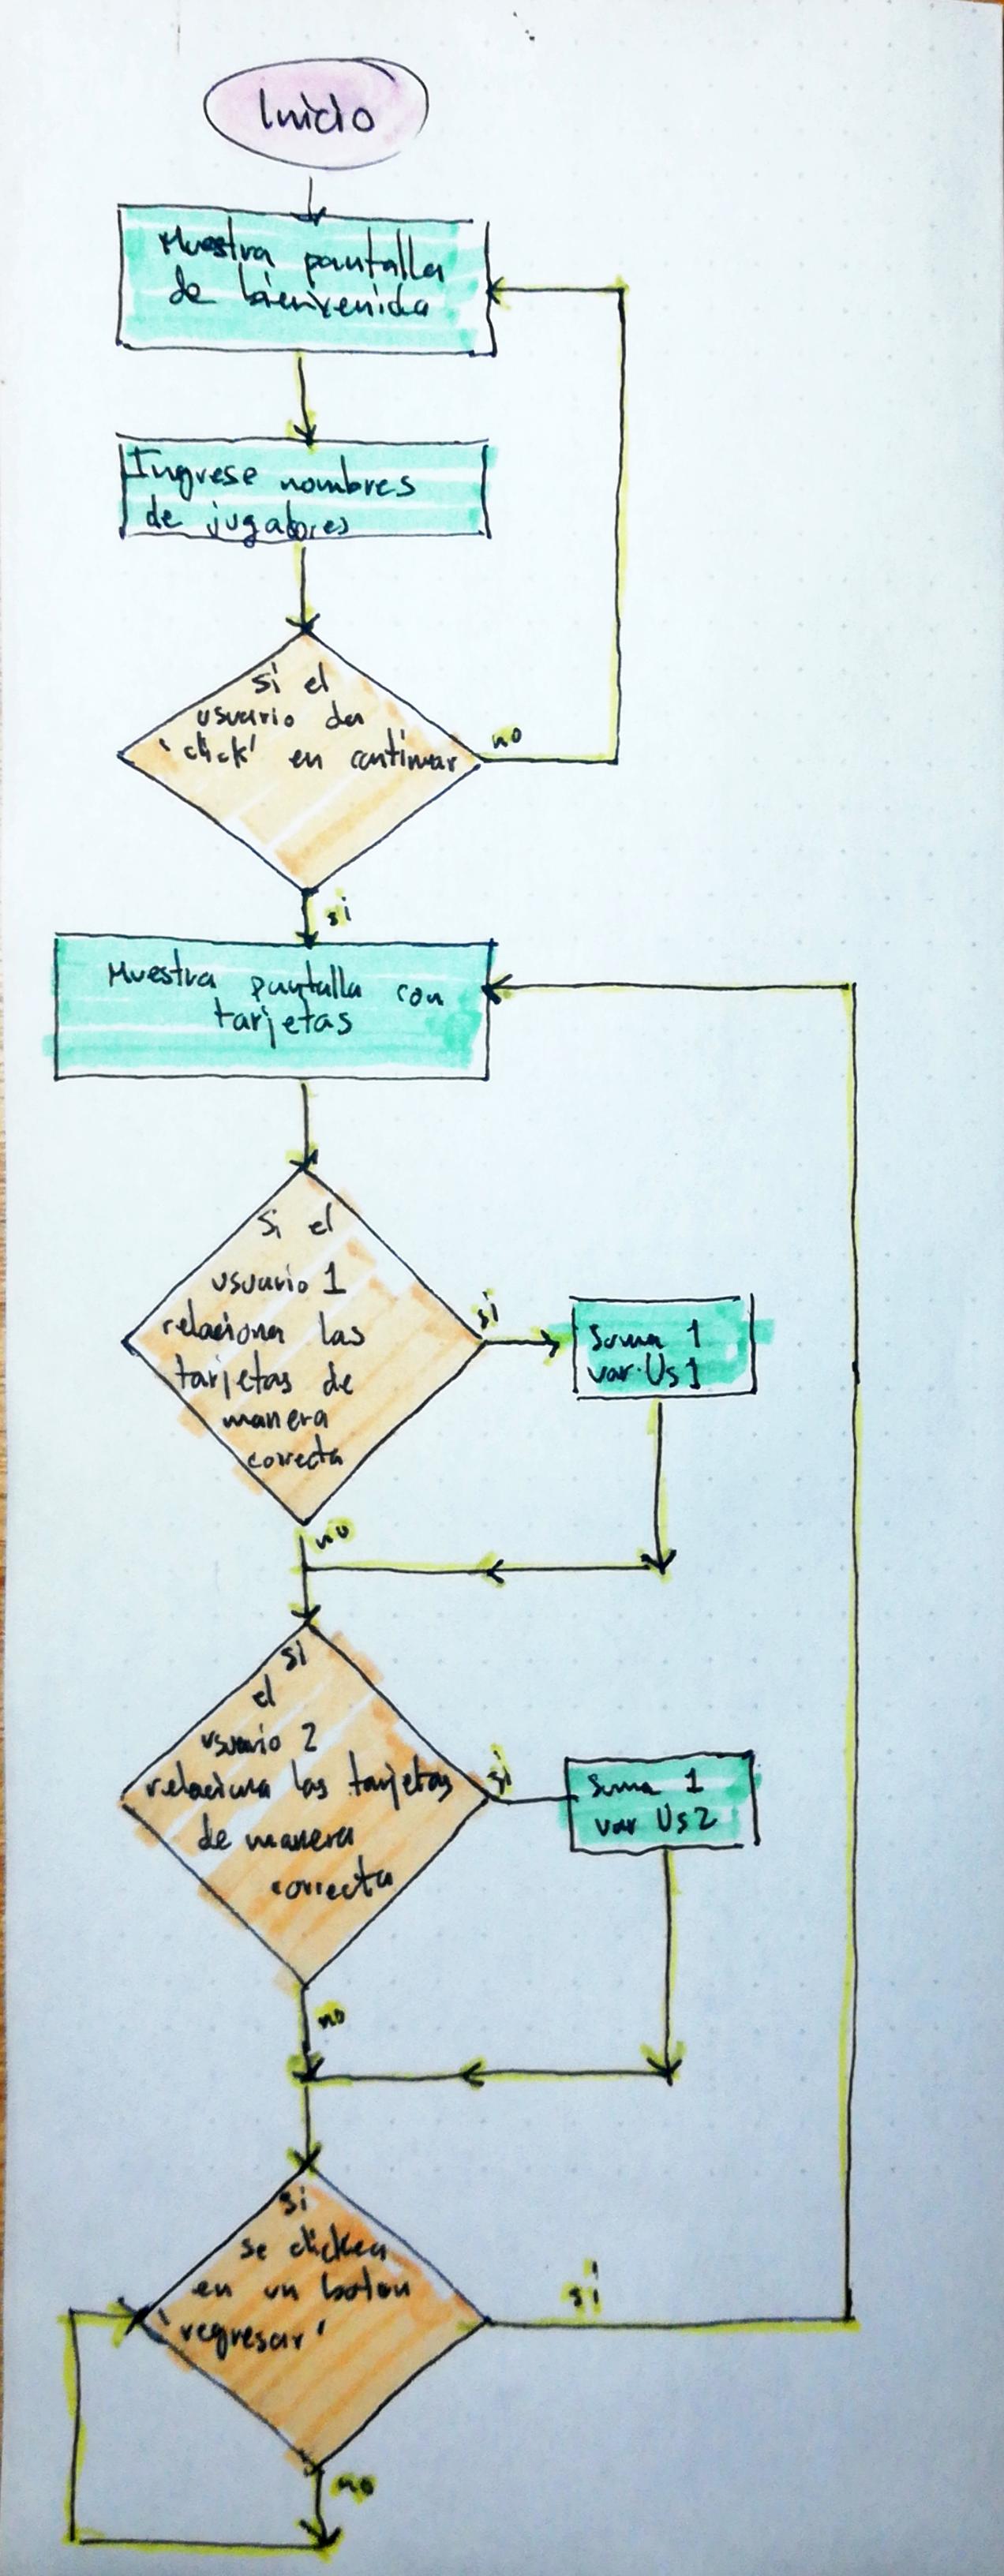 Inicio
Muestra pantalla
de bienvenida
Ingrese nombres
de jugadores
si el
usuario da
'click' en continuar
no
si
Muestra pantalla con
tarjetas
Si el
usuario 1
relaciona las
tarjetas de
manera
correcta
si
Suma 1
var. Us1
no
si
el
usuario 2
relaciona las tarjetas
de manera
correcta
si
Suma 1
var Us2
no
si
se clickea
en un boton
'regresar'
si
no